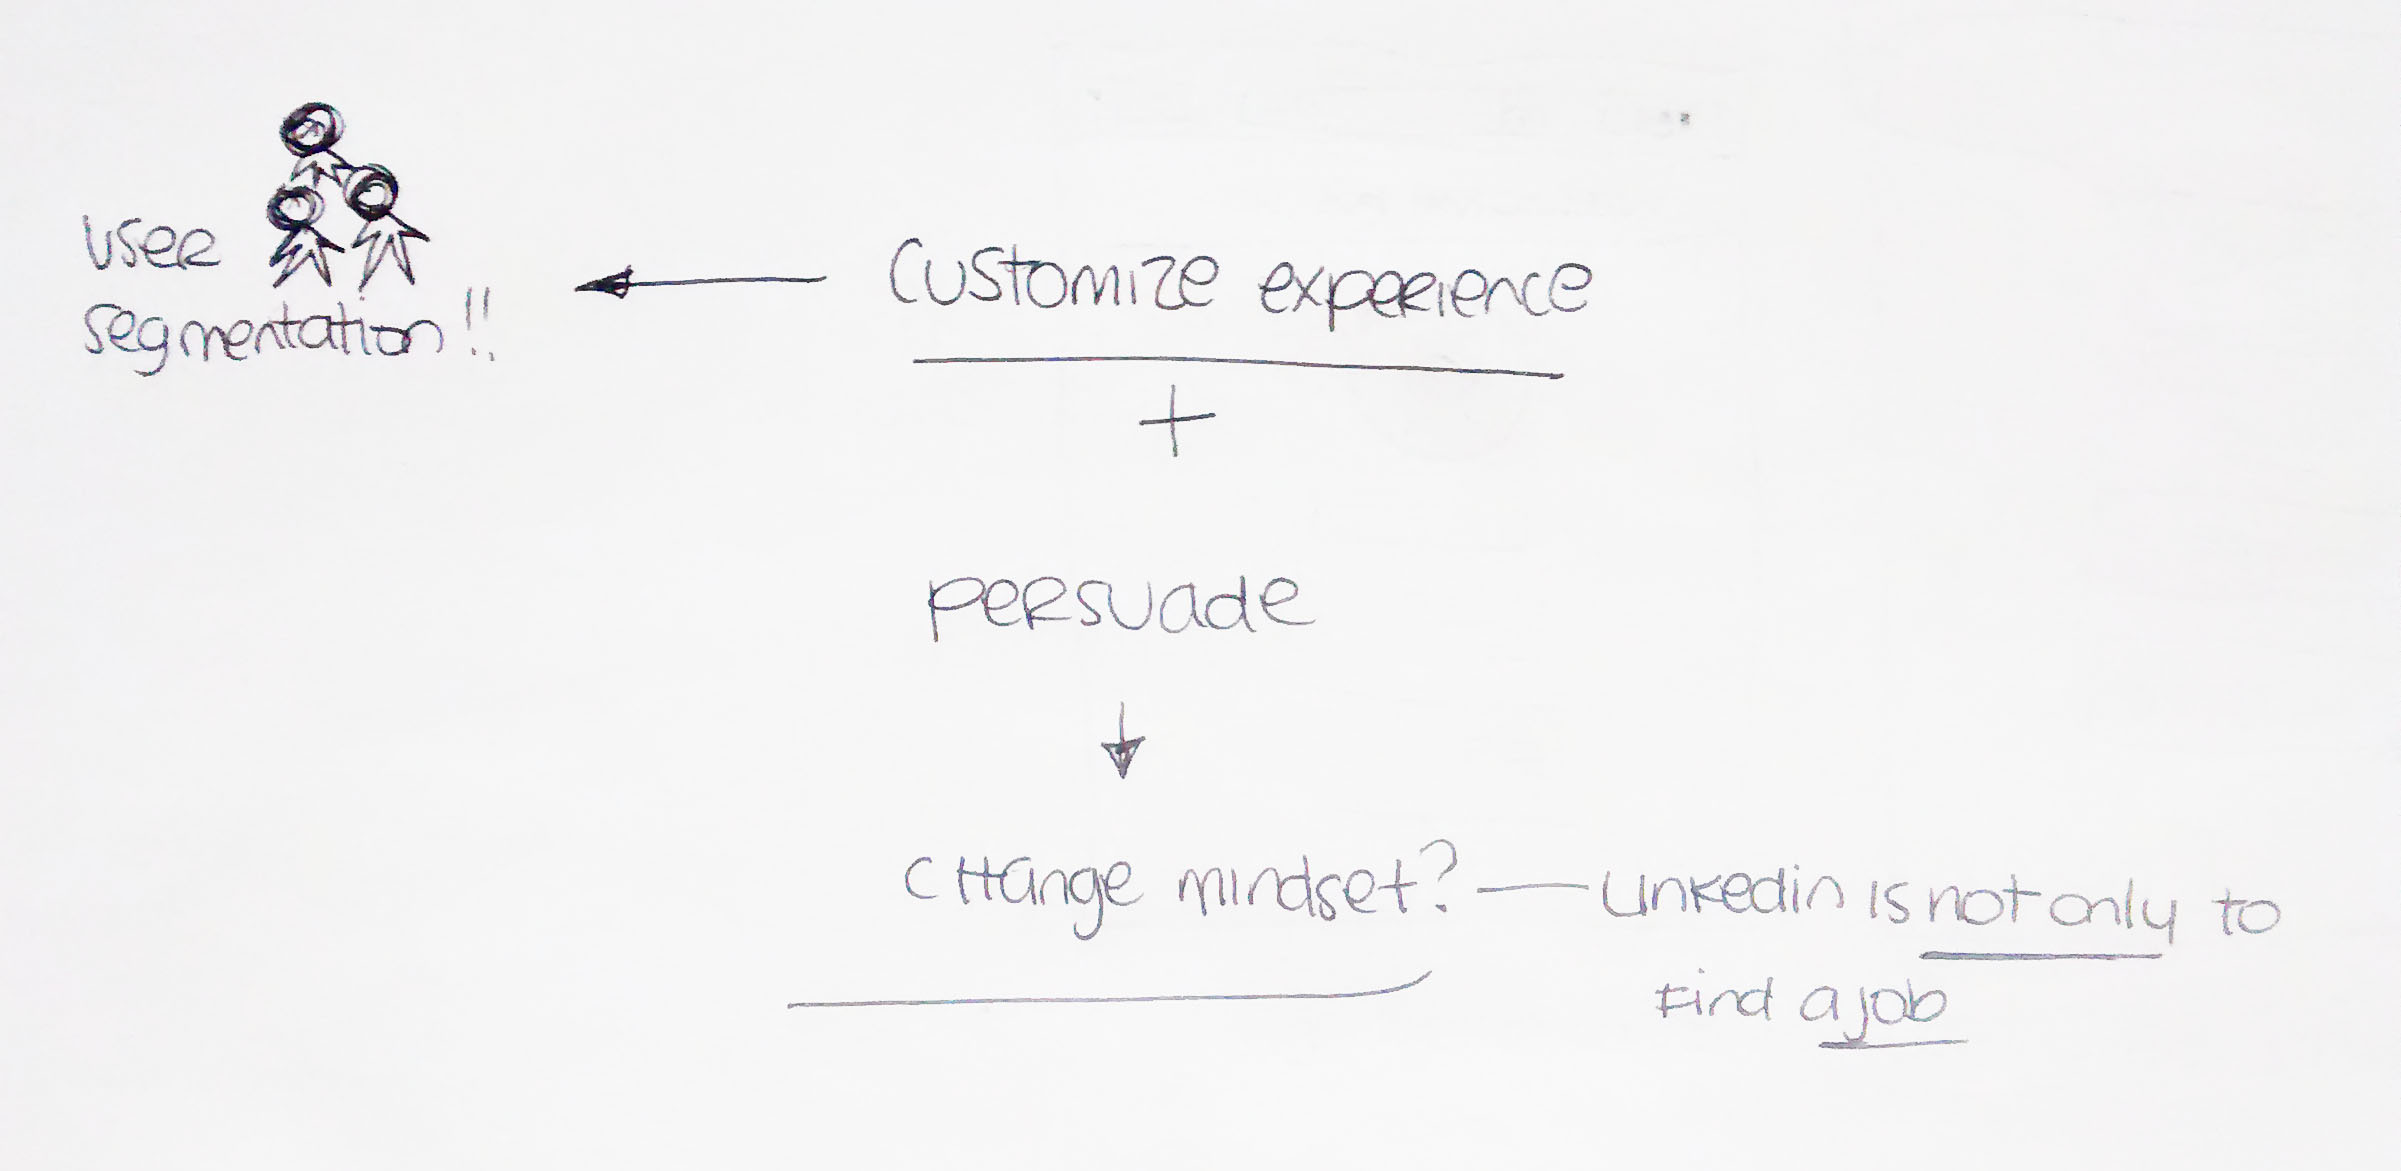 user
segmentation!!
Customize experience
+
persuade
Change mindset? — Linkedin is not only to
find a job